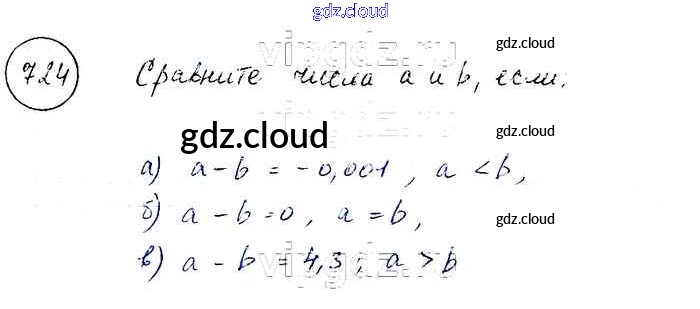 gdz.cloud
vipgdz.ru
gdz.cloud
724 Сравните числа а и b, если:
gdz.cloud
gdz.cloud
vipgdz.ru
а) a - b = -0,001 , a < b,
gdz.cloud
б) a - b = 0 , a = b,
gdz.cloud
в) a - b = 4,3 ; a > b
vipgdz.ru